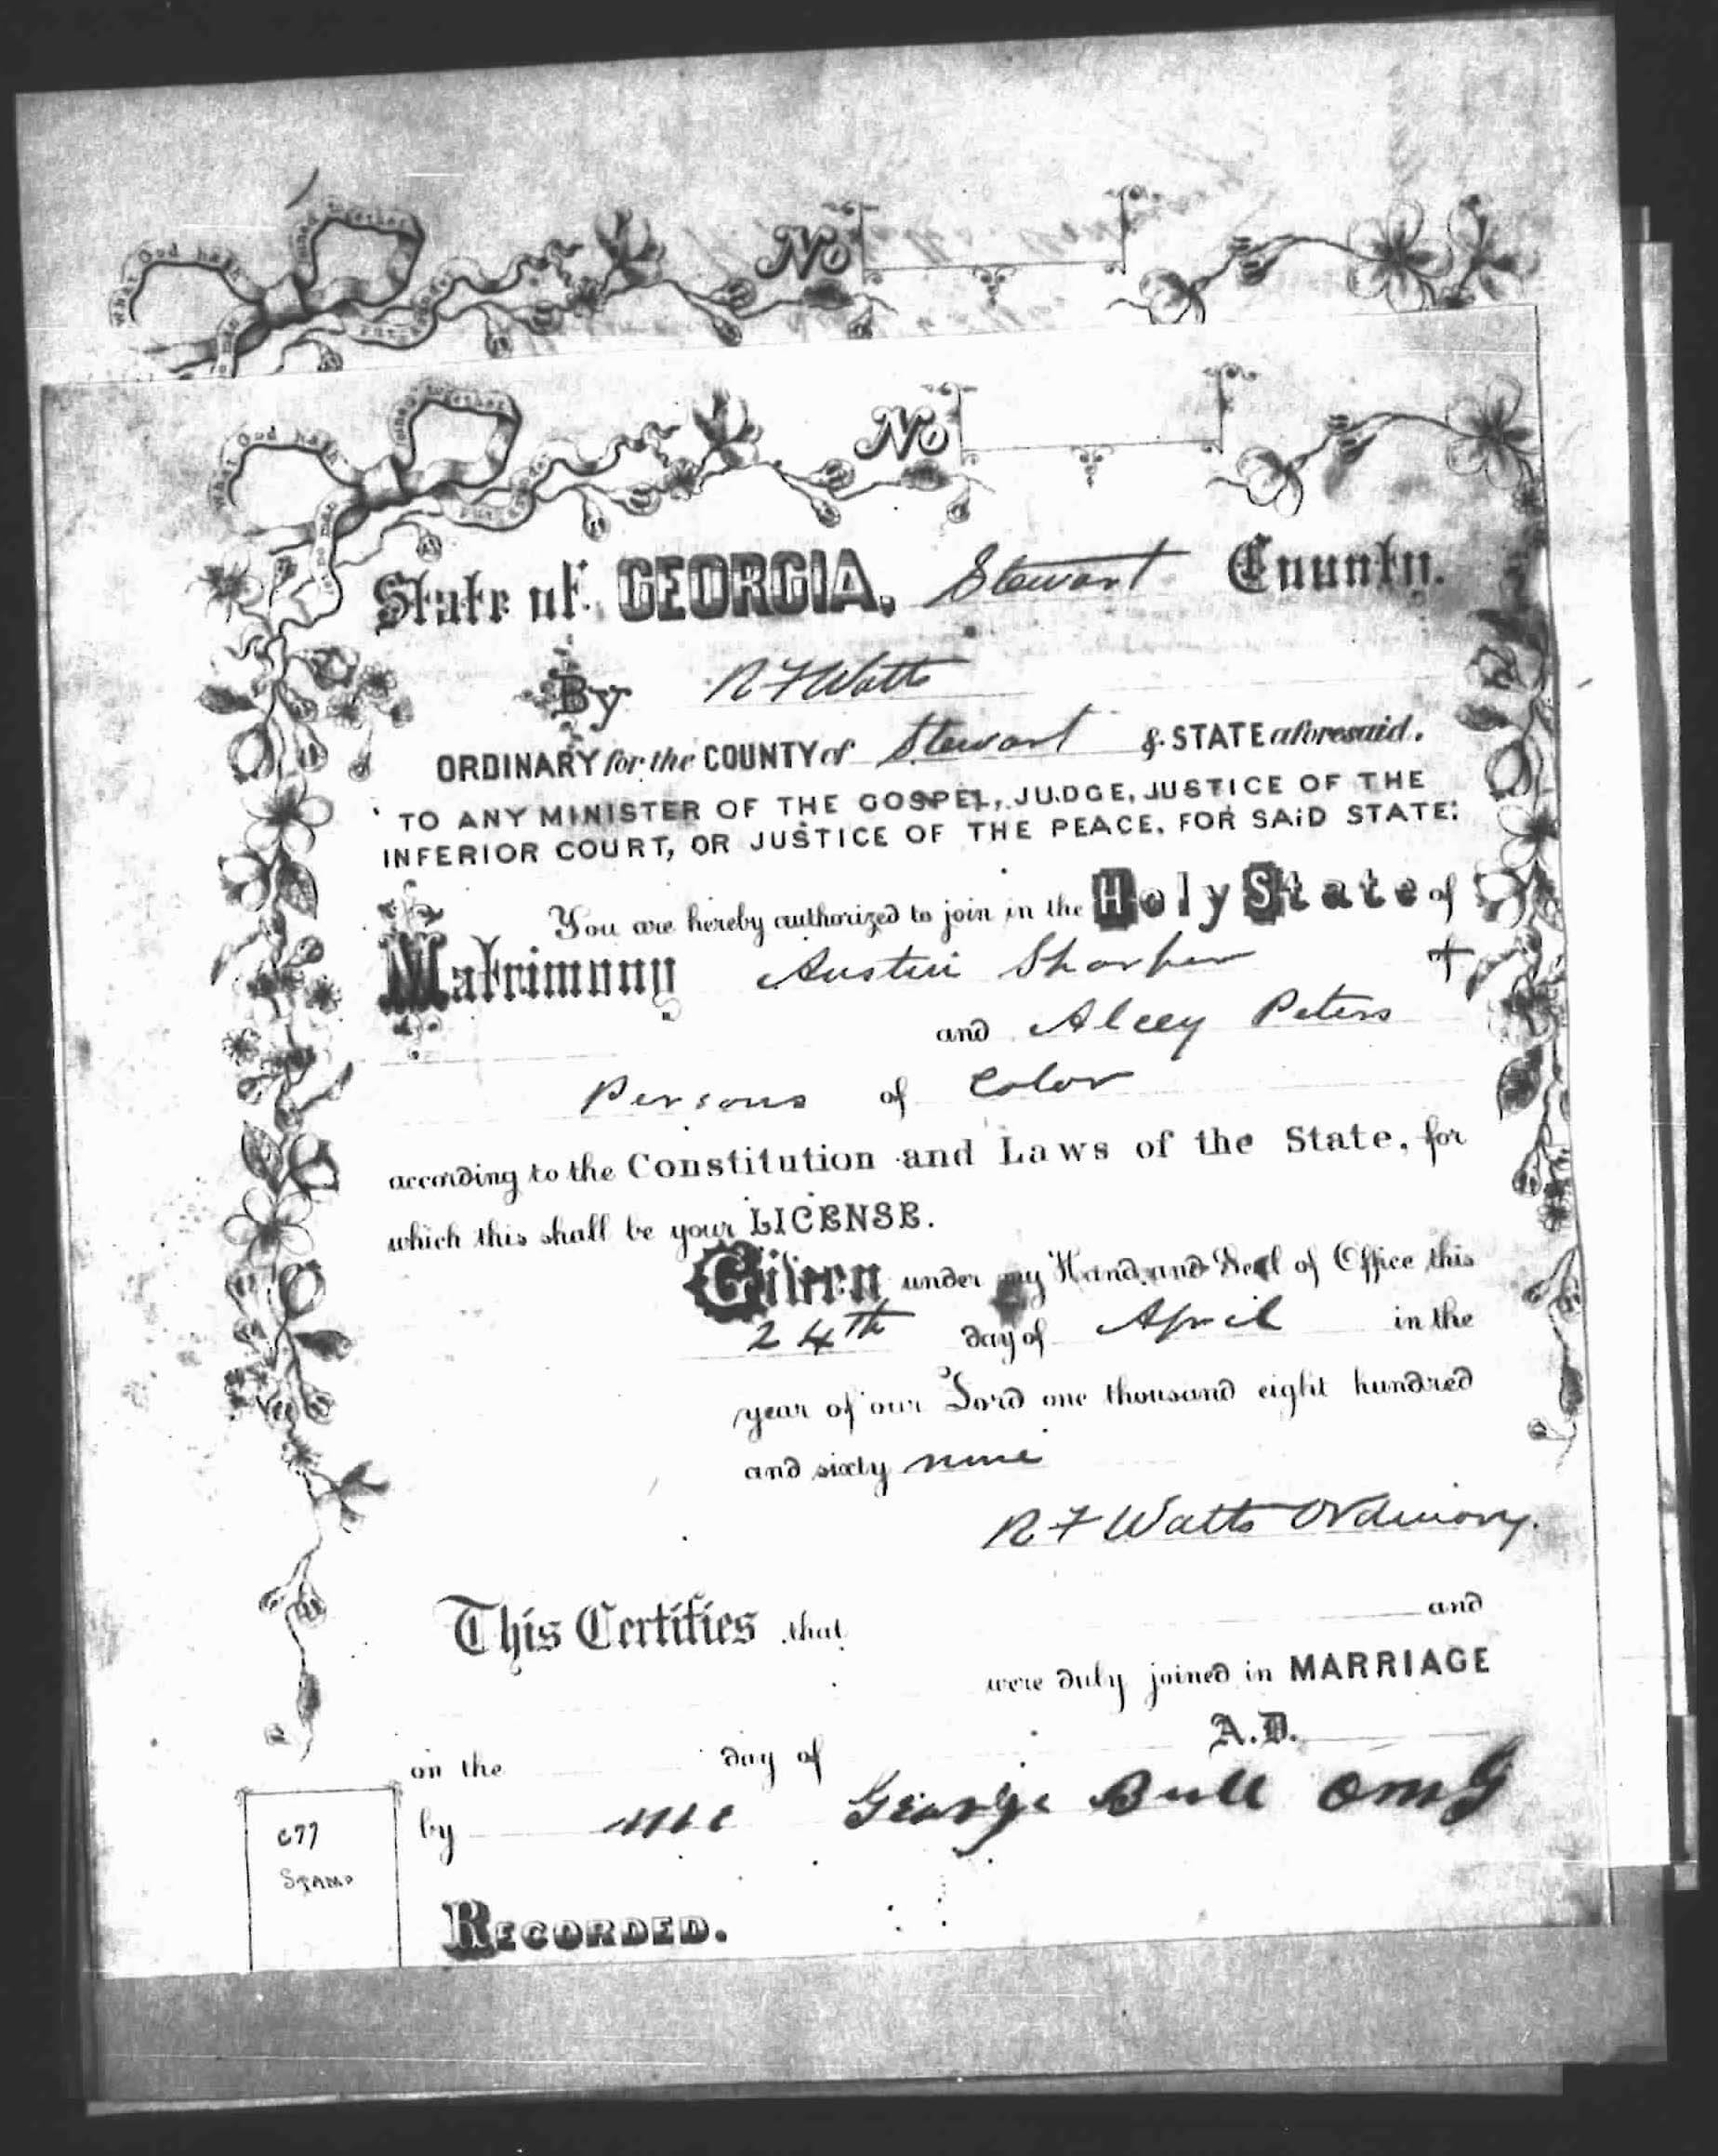 No
What God hath joined together
No
State of GEORGIA, Stewart County.
By R F Watts
ORDINARY for the COUNTY of Stewart & STATE aforesaid.
TO ANY MINISTER OF THE GOSPEL, JUDGE, JUSTICE OF THE
INFERIOR COURT, OR JUSTICE OF THE PEACE, FOR SAID STATE:
You are hereby authorized to join in the Holy State of
Matrimony Austin Sharper
and Alcey Peters
Persons of Color
according to the Constitution and Laws of the State, for
which this shall be your LICENSE.
Given under my Hand and Seal of Office this
24th day of April in the
year of our Lord one thousand eight hundred
and sixty nine
R F Watts Ordinary.
This Certifies that and
were duly joined in MARRIAGE
on the day of A.D.
by me George Bull O M G
STAMP
RECORDED.